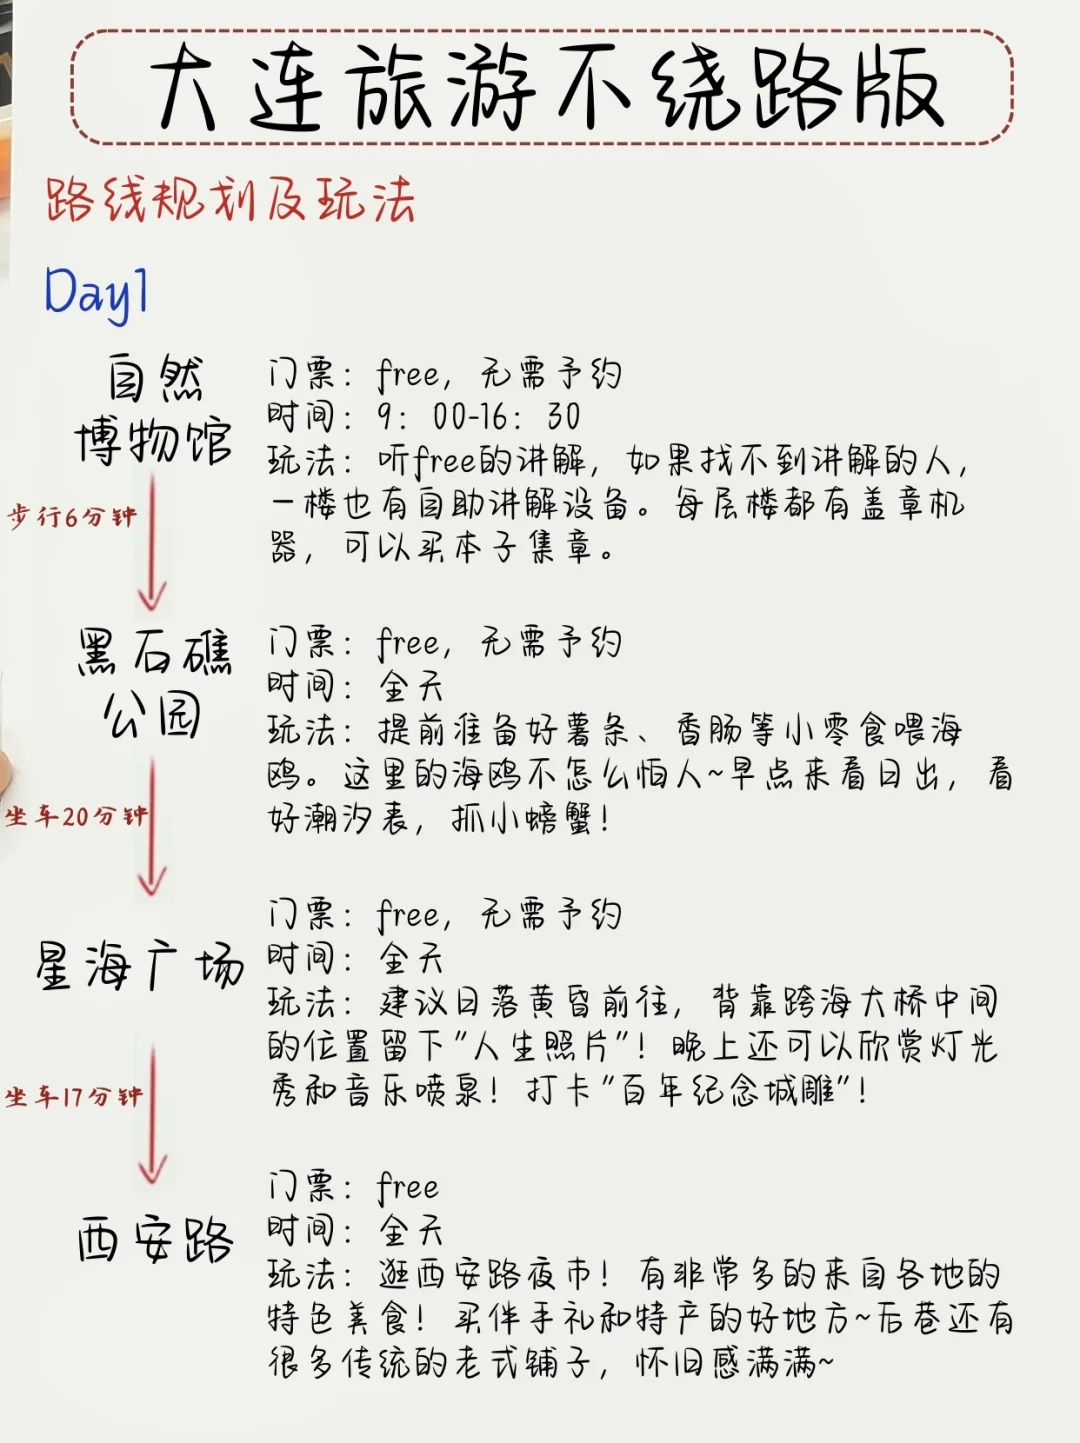 大连旅游不绕路版
路线规划及玩法
Day1
自然
博物馆
门票：free，无需予约
时间：9：00-16：30
玩法：听free的讲解，如果找不到讲解的人，
一楼也有自助讲解设备。每层楼都有盖章机
器，可以买本子集章。
步行6分钟
黑石礁
公园
门票：free，无需予约
时间：全天
玩法：提前准备好薯条、香肠等小零食喂海
鸥。这里的海鸥不怎么怕人~早点来看日出，看
好潮汐表，抓小螃蟹！
坐车20分钟
星海广场
门票：free，无需予约
时间：全天
玩法：建议日落黄昏前往，背靠跨海大桥中间
的位置留下“人生照片”！晚上还可以欣赏灯光
秀和音乐喷泉！打卡“百年纪念城雕”！
坐车17分钟
西安路
门票：free
时间：全天
玩法：逛西安路夜市！有非常多的来自各地的
特色美食！买伴手礼和特产的好地方~后巷还有
很多传统的老式铺子，怀旧感满满~